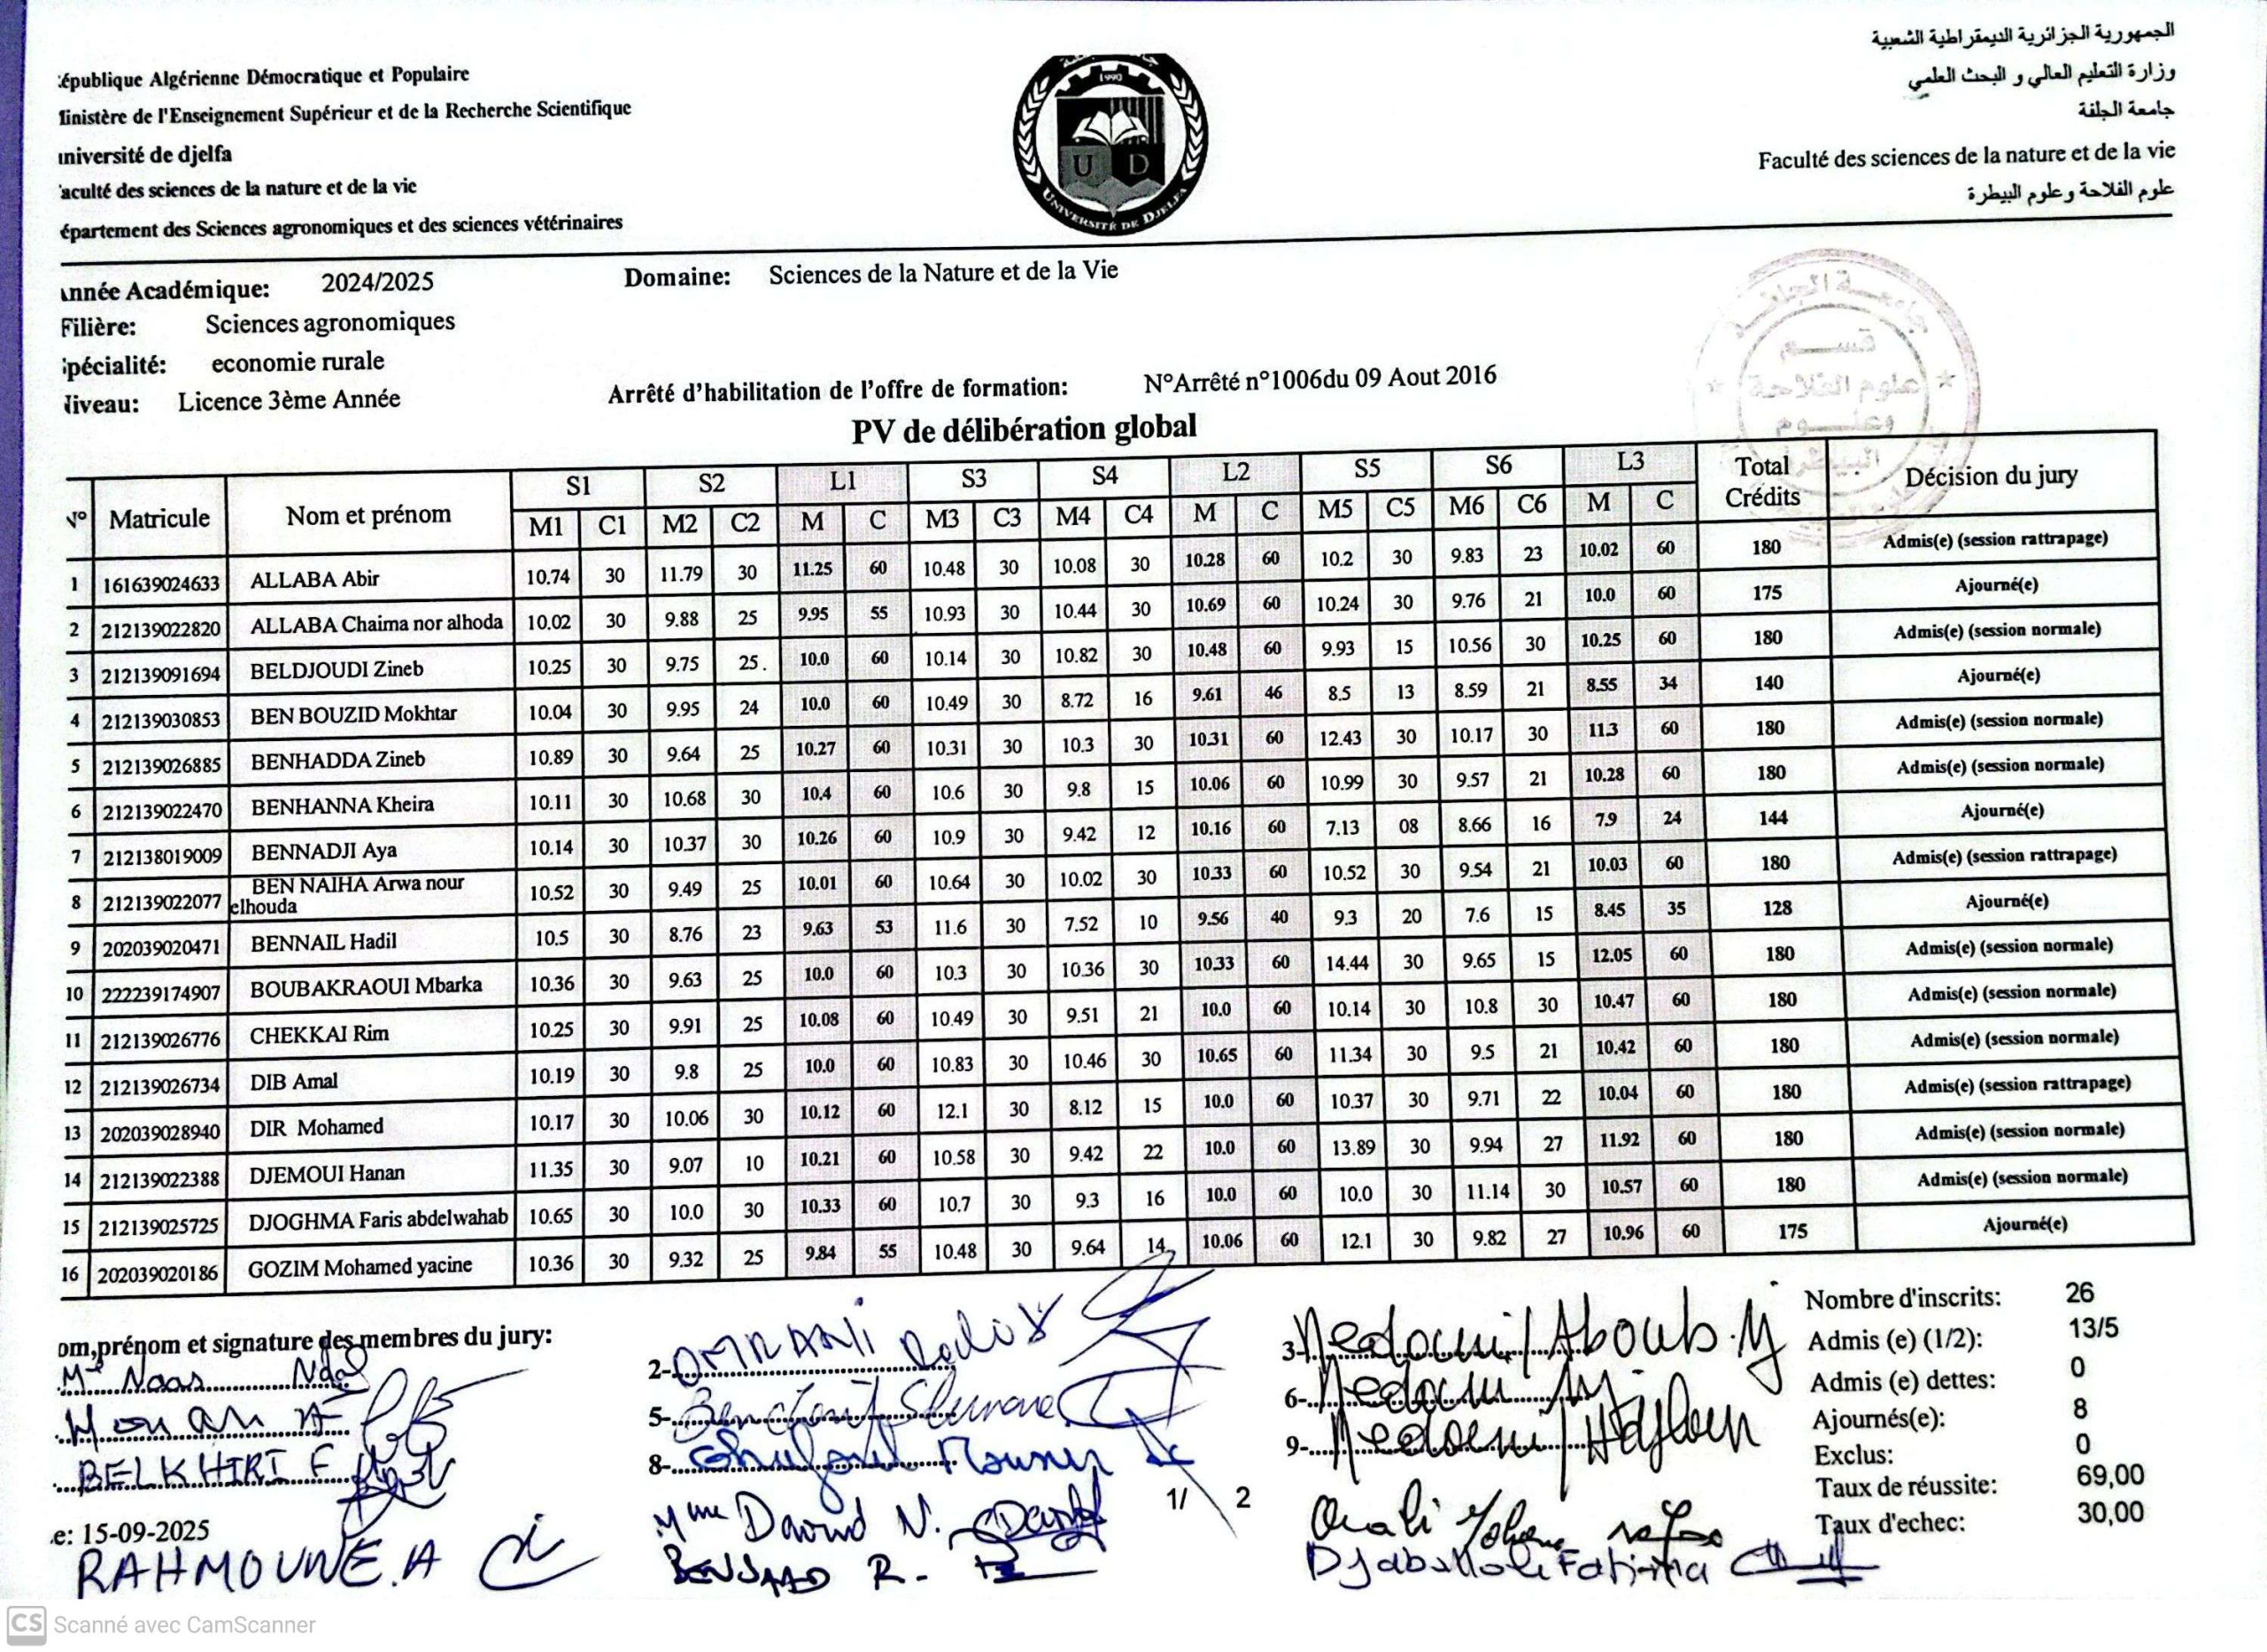 épublique Algérienne Démocratique et Populaire
linistère de l'Enseignement Supérieur et de la Recherche Scientifique
niversité de djelfa
aculté des sciences de la nature et de la vie
épartement des Sciences agronomiques et des sciences vétérinaires
1990
U D
UNIVERSITÉ DE DJELFA
الجمهورية الجزائرية الديمقراطية الشعبية
وزارة التعليم العالي و البحث العلمي
جامعة الجلفة
Faculté des sciences de la nature et de la vie
علوم الفلاحة وعلوم البيطرة
nnée Académique: 2024/2025 Domaine: Sciences de la Nature et de la Vie
Filière: Sciences agronomiques
pécialité: economie rurale
liveau: Licence 3ème Année Arrêté d'habilitation de l'offre de formation: N°Arrêté n°1006du 09 Aout 2016
جامعة الجلفة
قسم
علوم الفلاحة
وعلوم
البيطرة
PV de délibération global
N° Matricule Nom et prénom S1 S2 L1 S3 S4 L2 S5 S6 L3 Total Crédits Décision du jury
M1 C1 M2 C2 M C M3 C3 M4 C4 M C M5 C5 M6 C6 M C
1 161639024633 ALLABA Abir 10.74 30 11.79 30 11.25 60 10.48 30 10.08 30 10.28 60 10.2 30 9.83 23 10.02 60 180 Admis(e) (session rattrapage)
2 212139022820 ALLABA Chaima nor alhoda 10.02 30 9.88 25 9.95 55 10.93 30 10.44 30 10.69 60 10.24 30 9.76 21 10.0 60 175 Ajourné(e)
3 212139091694 BELDJOUDI Zineb 10.25 30 9.75 25. 10.0 60 10.14 30 10.82 30 10.48 60 9.93 15 10.56 30 10.25 60 180 Admis(e) (session normale)
4 212139030853 BEN BOUZID Mokhtar 10.04 30 9.95 24 10.0 60 10.49 30 8.72 16 9.61 46 8.5 13 8.59 21 8.55 34 140 Ajourné(e)
5 212139026885 BENHADDA Zineb 10.89 30 9.64 25 10.27 60 10.31 30 10.3 30 10.31 60 12.43 30 10.17 30 11.3 60 180 Admis(e) (session normale)
6 212139022470 BENHANNA Kheira 10.11 30 10.68 30 10.4 60 10.6 30 9.8 15 10.06 60 10.99 30 9.57 21 10.28 60 180 Admis(e) (session normale)
7 212138019009 BENNADJI Aya 10.14 30 10.37 30 10.26 60 10.9 30 9.42 12 10.16 60 7.13 08 8.66 16 7.9 24 144 Ajourné(e)
8 212139022077 BEN NAIHA Arwa nour elhouda 10.52 30 9.49 25 10.01 60 10.64 30 10.02 30 10.33 60 10.52 30 9.54 21 10.03 60 180 Admis(e) (session rattrapage)
9 202039020471 BENNAIL Hadil 10.5 30 8.76 23 9.63 53 11.6 30 7.52 10 9.56 40 9.3 20 7.6 15 8.45 35 128 Ajourné(e)
10 222239174907 BOUBAKRAOUI Mbarka 10.36 30 9.63 25 10.0 60 10.3 30 10.36 30 10.33 60 14.44 30 9.65 15 12.05 60 180 Admis(e) (session normale)
11 212139026776 CHEKKAI Rim 10.25 30 9.91 25 10.08 60 10.49 30 9.51 21 10.0 60 10.14 30 10.8 30 10.47 60 180 Admis(e) (session normale)
12 212139026734 DIB Amal 10.19 30 9.8 25 10.0 60 10.83 30 10.46 30 10.65 60 11.34 30 9.5 21 10.42 60 180 Admis(e) (session normale)
13 202039028940 DIR Mohamed 10.17 30 10.06 30 10.12 60 12.1 30 8.12 15 10.0 60 10.37 30 9.71 22 10.04 60 180 Admis(e) (session rattrapage)
14 212139022388 DJEMOUI Hanan 11.35 30 9.07 10 10.21 60 10.58 30 9.42 22 10.0 60 13.89 30 9.94 27 11.92 60 180 Admis(e) (session normale)
15 212139025725 DJOGHMA Faris abdelwahab 10.65 30 10.0 30 10.33 60 10.7 30 9.3 16 10.0 60 10.0 30 11.14 30 10.57 60 180 Admis(e) (session normale)
16 202039020186 GOZIM Mohamed yacine 10.36 30 9.32 25 9.84 55 10.48 30 9.64 14 10.06 60 12.1 30 9.82 27 10.96 60 175 Ajourné(e)
om,prénom et signature des membres du jury:
Mr Naas
2-OMRANI
3-Nedoui/Aboub.M
5-
6-
BELKHIRI F
8-
9-
Mme Daoud N.
1/ 2
e: 15-09-2025
RAHMOUNE.A
BENSAAD R.
Djaballah Fatima
Nombre d'inscrits: 26
Admis (e) (1/2): 13/5
Admis (e) dettes: 0
Ajournés(e): 8
Exclus: 0
Taux de réussite: 69,00
Taux d'echec: 30,00
CS Scanné avec CamScanner